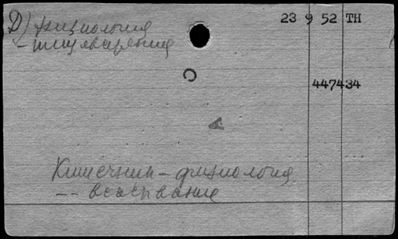 D) физиология 23 9 52 TH
- пищеварения
447434
A
Кишечник - физиология
-- всасывание